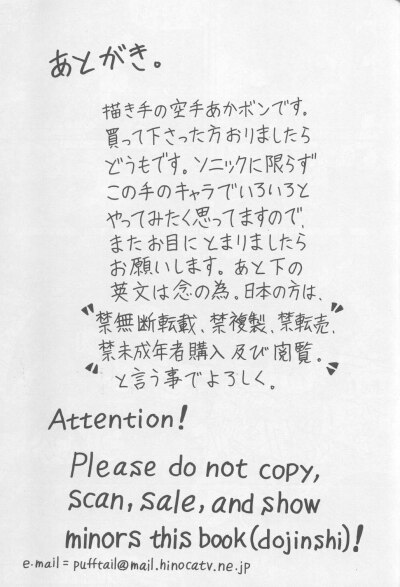 あとがき。
描き手の空手あかボンです。
買って下さった方おりましたら
どうもです。ソニックに限らず
この手のキャラでいろいろと
やってみたく思ってますので、
またお目にとまりましたら
お願いします。あと下の
英文は念の為。日本の方は、
"禁無断転載、禁複製、禁転売、
禁未成年者購入及び閲覧。"
と言う事でよろしく。
Attention!
Please do not copy,
scan, sale, and show
minors this book(dojinshi)!
e-mail = pufftail@mail.hinocatv.ne.jp